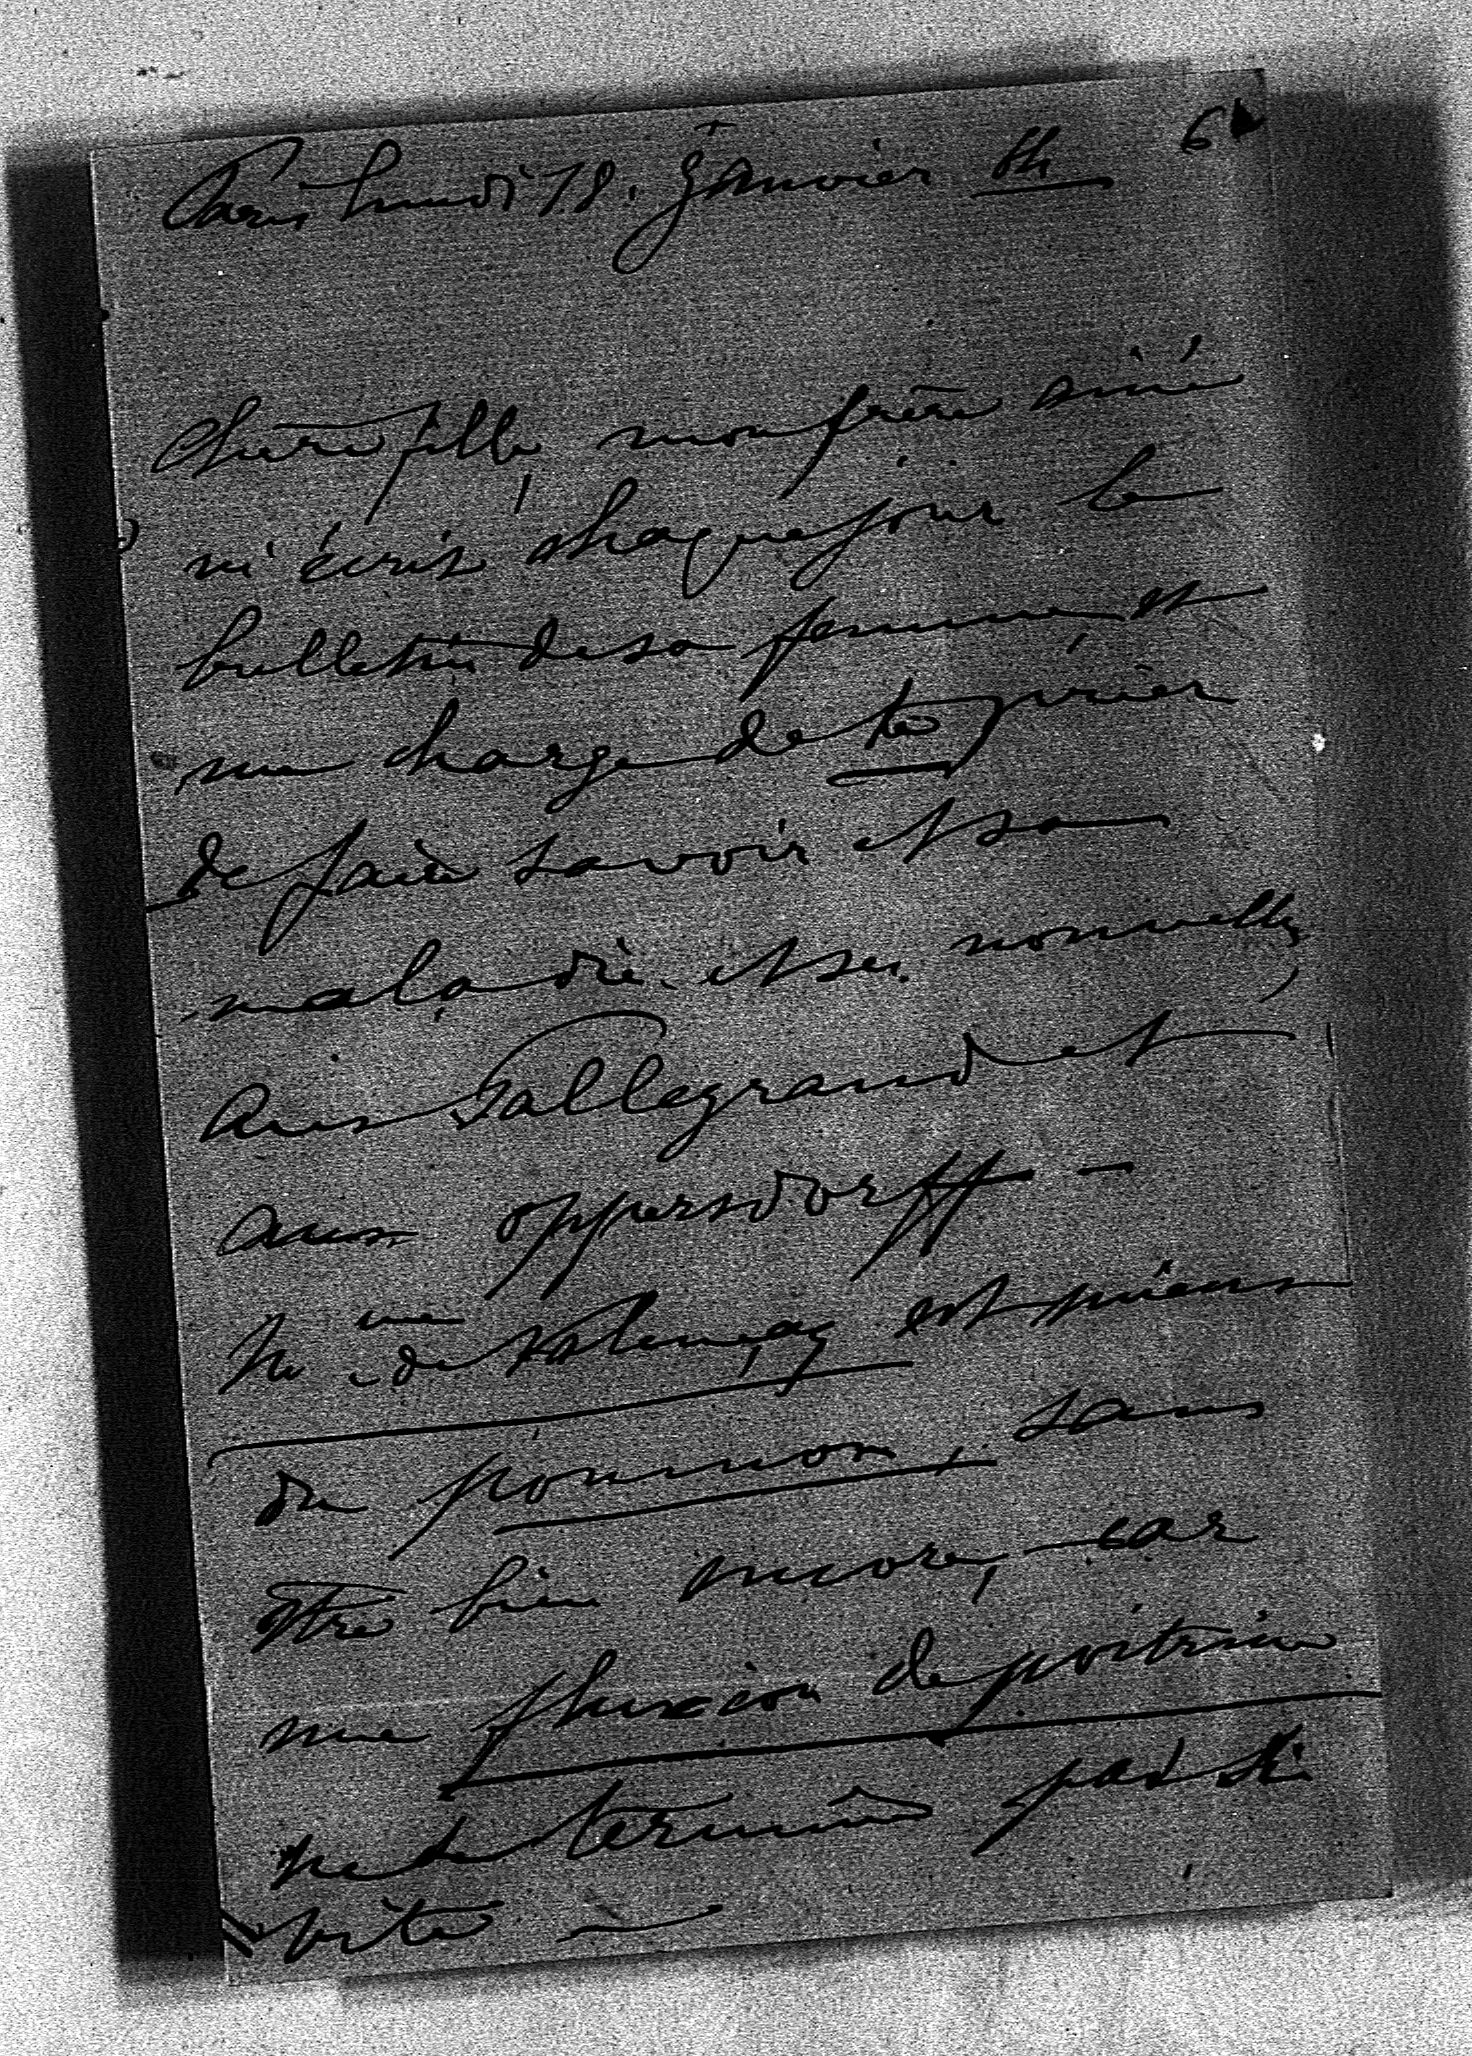 Paris lundi 18. Janvier 64 6
Chère fille, mon frère ainé
m'écrit chaque jour le
bulletin de sa femme, et
me charge de te prier
de faire savoir et sa
maladie et ses nouvelles,
aux Tallegrand et
aux Oppersdorff —
Me de Valençay est mieux
du poumon, sans
être bien encore, car
une fluxion de poitrine
ne se termine pas si
vite —